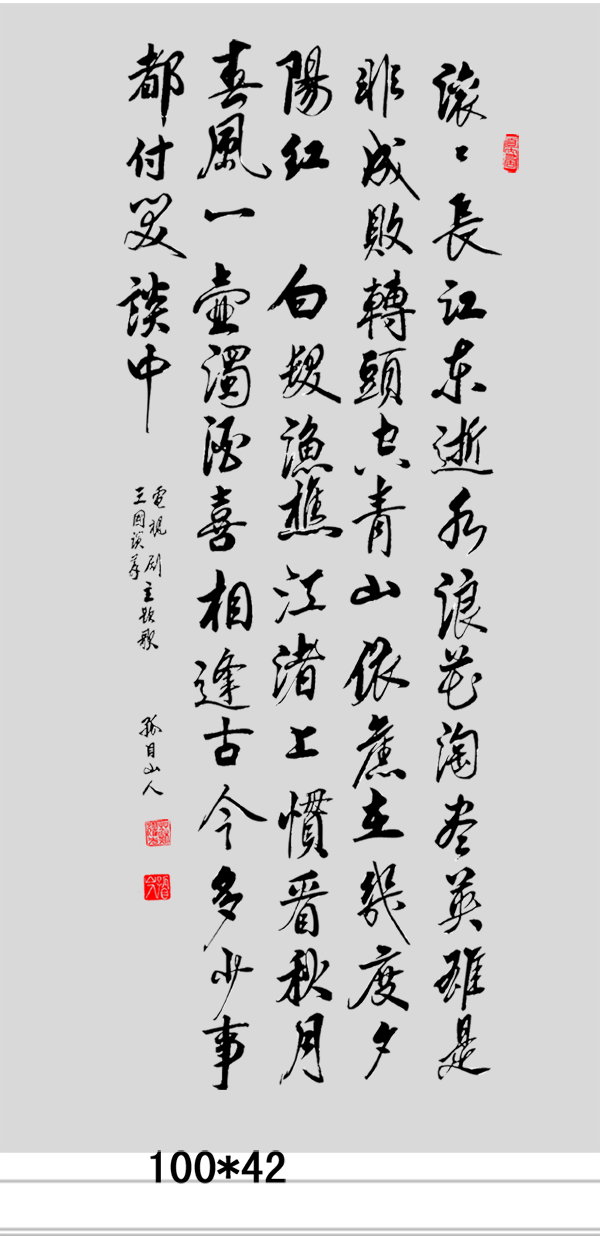 滚々長江东逝水浪花淘尽英雄是
非成敗轉頭空青山依舊在幾度夕
陽红 白髮漁樵江渚上慣看秋月
春風一壺濁酒喜相逢古今多少事
都付笑談中
電視剧
三國演義
主題歌
山人
100*42